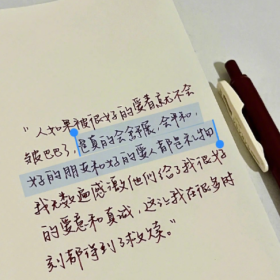 “人如果被很好的爱着就不会
皱巴巴了，是真的会舒展，会平和，
好的朋友和好的爱人都是礼物
我无数遍感激他们给了我很多
的爱意和真诚，这让我在很多时
刻都得到了救赎。”